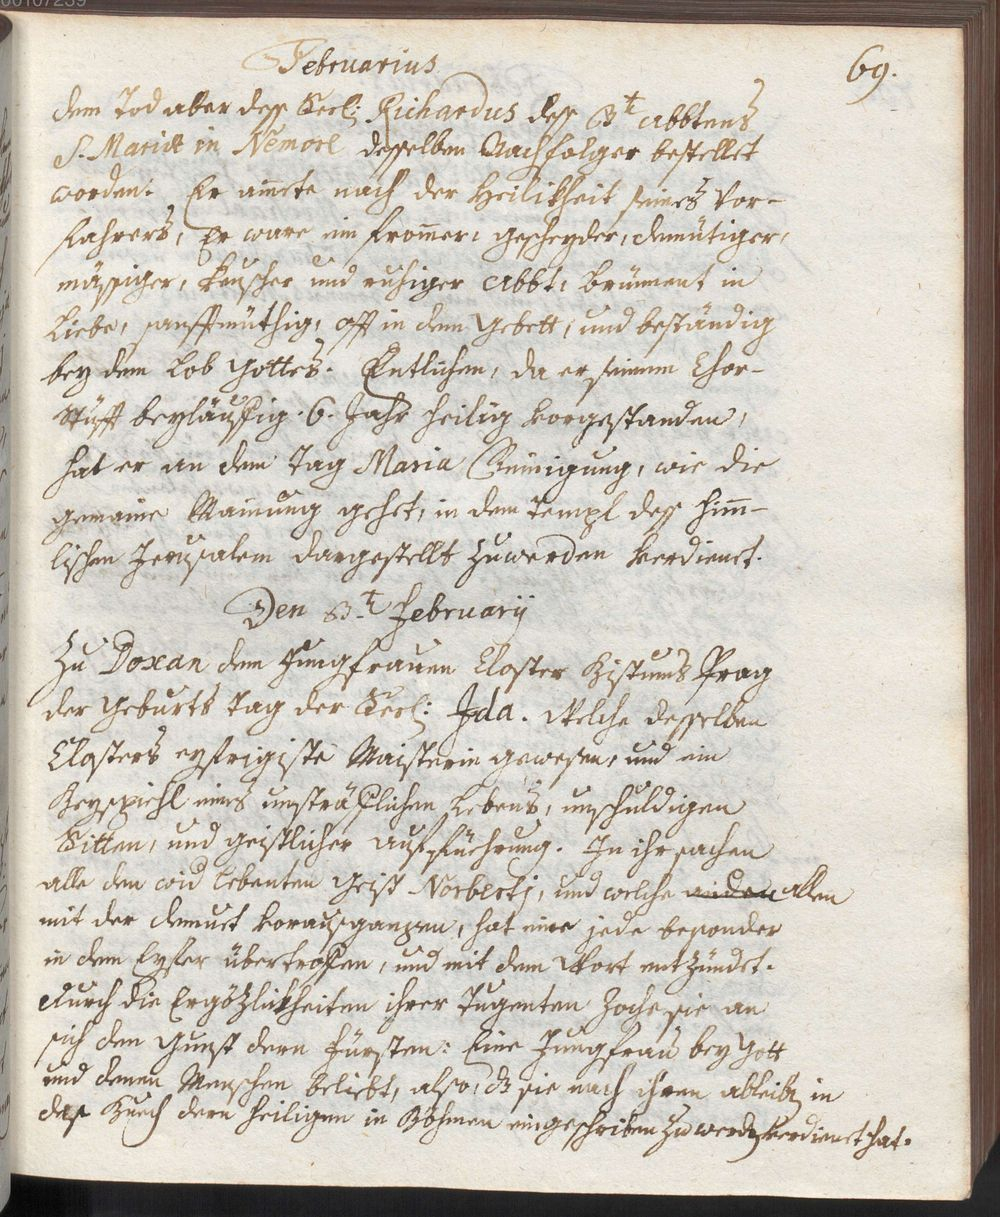 00107239
Februarius
69.
dem Tod aber deß Seel: Richardus deß 3t. Abbtens
S. Mariæ in Nemore desselben Nachfolger bestellet
worden. Er amete nach der Heiligkeit seines Vor-
fahrers, Er ware ein frommer, gescheyder, demütiger,
mässiger, keuscher und ruhiger Abbt, brünnent in
Liebe, sanfftmüthig, oft in dem Gebett, und beständig
bey dem Lob Gottes. Entlichen, da er seinem Chor-
Stüfft beyläuffig 6. Jahr heilig vorgestanden,
hat er an dem Tag Maria Reinigung, wie die
gemaine Mainung gehet, in dem Templ deß himm-
lischen Jerusalem dargestellt zuwerden verdienet.
Den 3.t Februarij
Zu Doxan dem Jungfrauen Closter Bistums Prag
der Geburts Tag der Seel: Ida. Welche desselben
Closters eyfrigiste Maisterin gewesen, und ein
Beyspiehl eines unsträflichen Lebens, unschuldigen
Sitten, und geistlicher Aufführung. In ihr sachen
alle den wid lebenten Geist Norberti, und welche allen
mit der Demut vorausgangen, hat eine jede besonder
in dem Eyfer übertroffen, und mit dem Wort entzündet.
Durch die Ergötzlichkeiten ihrer Tugenten zoche sie an
sich den Gunst dern Fürsten: Eine Jungfrau bey Gott
und denen Menschen beliebt, also, dz sie nach ihren ableiben in
daß Buech dern Heiligen in Böhmen eingeschriben zu werden verdienet hat.